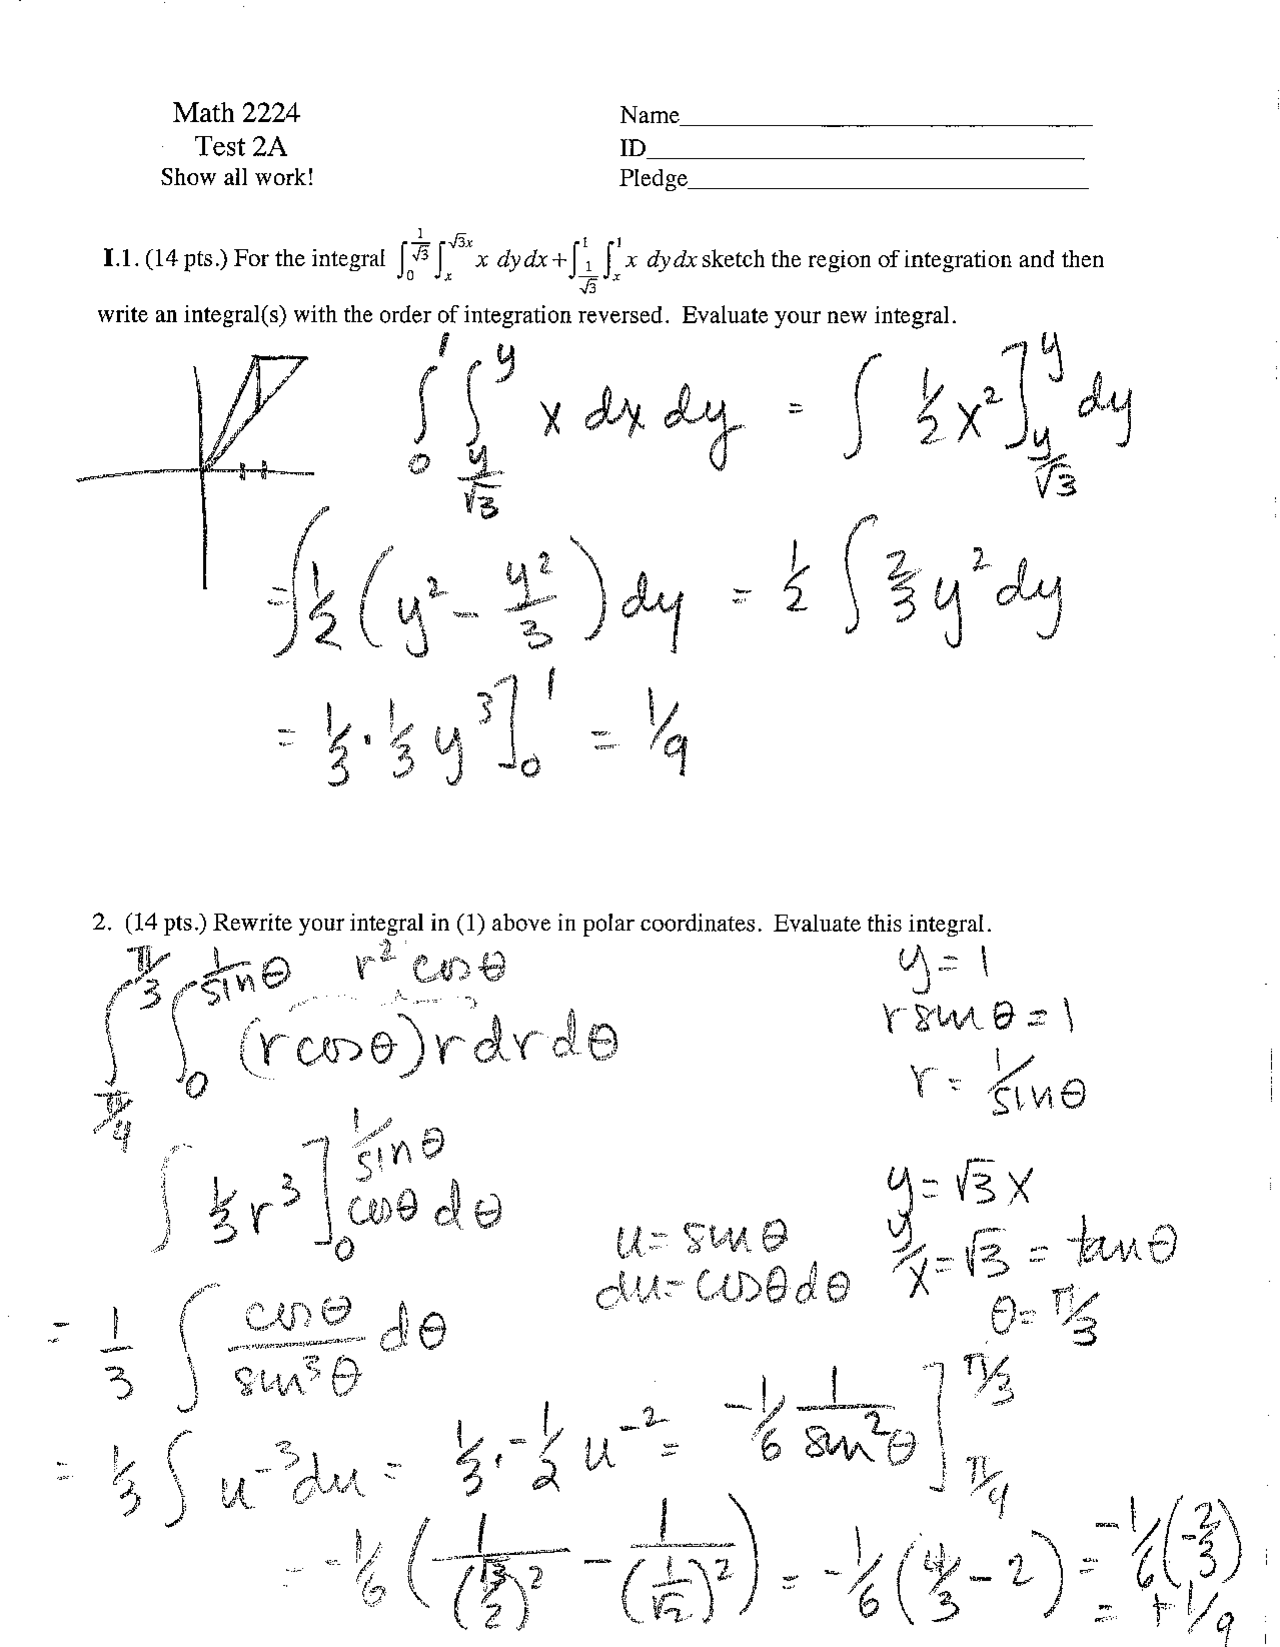 Math 2224
Name
Test 2A
ID
Show all work!
Pledge
I.1. (14 pts.) For the integral ∫_0^{1/√3} ∫_x^{√3x} x dy dx + ∫_{1/√3}^1 ∫_x^1 x dy dx sketch the region of integration and then
write an integral(s) with the order of integration reversed. Evaluate your new integral.
∫_0^1 ∫_{y/√3}^y x dx dy = ∫ 1/2 x²]_{y/√3}^y dy
= ∫ 1/2 (y² - y²/3) dy = 1/2 ∫ 2/3 y² dy
= 1/3 · 1/3 y³]_0^1 = 1/9
2. (14 pts.) Rewrite your integral in (1) above in polar coordinates. Evaluate this integral.
r² cosθ
∫_{π/4}^{π/3} ∫_0^{1/sinθ} (r cosθ) r dr dθ
y = 1
r sinθ = 1
r = 1/sinθ
∫ 1/3 r³]_0^{1/sinθ} cosθ dθ
y = √3 x
y/x = √3 = tanθ
θ = π/3
u = sinθ
du = cosθ dθ
= 1/3 ∫ cosθ/sin³θ dθ
= 1/3 ∫ u⁻³ du = 1/3 · -1/2 u⁻² = -1/6 1/sin²θ]_{π/4}^{π/3}
= -1/6 (1/(√3/2)² - 1/(1/√2)²) = -1/6 (4/3 - 2) = -1/6 (-2/3)
= +1/9